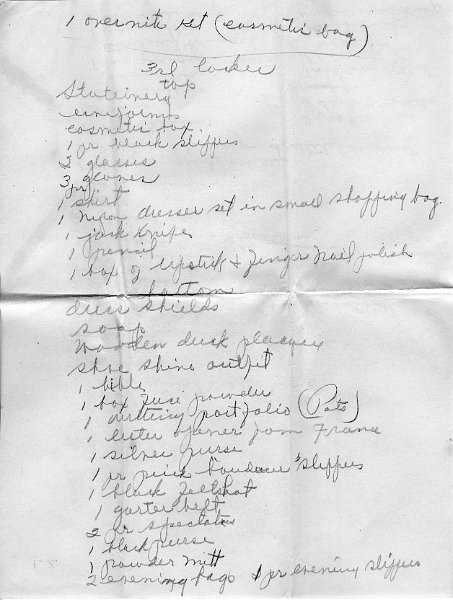 1 overnite set (cosmetic bag)
3rd locker
top
Stationery
uniforms
cosmetic box.
1 pr black slippers
2 glasses
3 pr gloves
1 skirt
1 nylon dresser set in small shopping bag.
1 jack knife
1 pencil
1 box of lipstick & finger nail polish
bottom
dress shields
soap
wooden duck plaque
shoe shine outfit
1 bible
1 box face powder
1 writing portfolio (Pats)
1 letter opener from France
1 silver purse
1 pr pink boudoir slippers
1 black felt hat
1 garter belt
2 pr spectators
1 black purse
1 powder mitt
2 evening bags 1 pr evening slippers